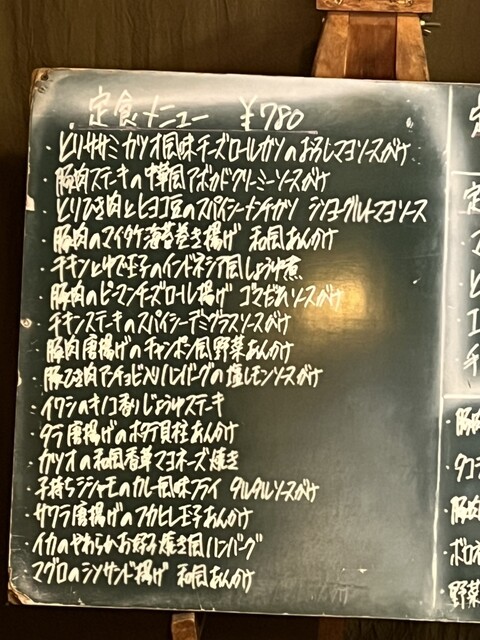 定食メニュー ¥780
・とりササミカツオ風味チーズロールカツのおろしマヨソースがけ
・豚肉ステーキの中華風アボカドクリーミーソースがけ
・とりひき肉とヒヨコ豆のスパイシーメンチカツ シソヨーグルトマヨソース
・豚肉のマイタケ海苔巻き揚げ 和風あんかけ
・チキンとゆで玉子のインドネシア風しょうゆ煮
・豚肉のピーマンチーズロール揚げ ゴマだれソースがけ
・チキンステーキのスパイシーデミグラスソースがけ
・豚肉唐揚げのチャンポン風野菜あんかけ
・豚ひき肉アンチョビ入りハンバーグの塩レモンソースがけ
・イワシのキノコ香りじょうゆステーキ
・タラ唐揚げのポテト貝柱あんかけ
・カツオの和風香草マヨネーズ焼き
・子持ちシシャモのカレー風味フライ タルタルソースがけ
・サワラ唐揚げのフカヒレ玉子あんかけ
・イカのやわらかお好み焼き風ハンバーグ
・マグロのシソサンド揚げ 和風あんかけ
定
定
マ
と
エ
チ
・豚肉
・タコ
・豚肉
・ボロネ
・野菜